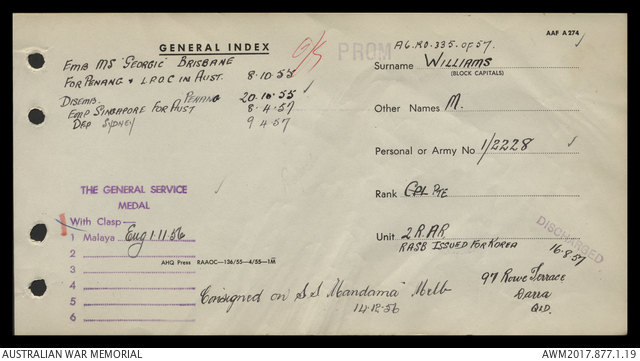 AAF A 274
GENERAL INDEX
O/S
PROM
A6.RO.335.OF 57.
EMB MS "GEORGIC" BRISBANE
FOR PENANG + L.P.O.C IN AUST. 8.10.55
DISEMB. PENANG 20.10.55
EMP SINGAPORE FOR AUST 8.4.57
DEP SYDNEY 9 4.57
Surname WILLIAMS
(BLOCK CAPITALS)
Other Names M.
Personal or Army No 1/2228
Rank CPL PTE
Unit 2 R.A.R
RASB ISSUED FOR KOREA
DISCHARGED
16.8.57
97 Rowe Terrace
Darra
QLD.
THE GENERAL SERVICE
MEDAL
With Clasp—
1 Malaya Eng 1.11.56
2
AHQ Press RAAOC—136/55—4/55—1M
3
4
5
6
Consigned on S.S "Mandama" Melb
14.12.56
AUSTRALIAN WAR MEMORIAL
AWM2017.877.1.19